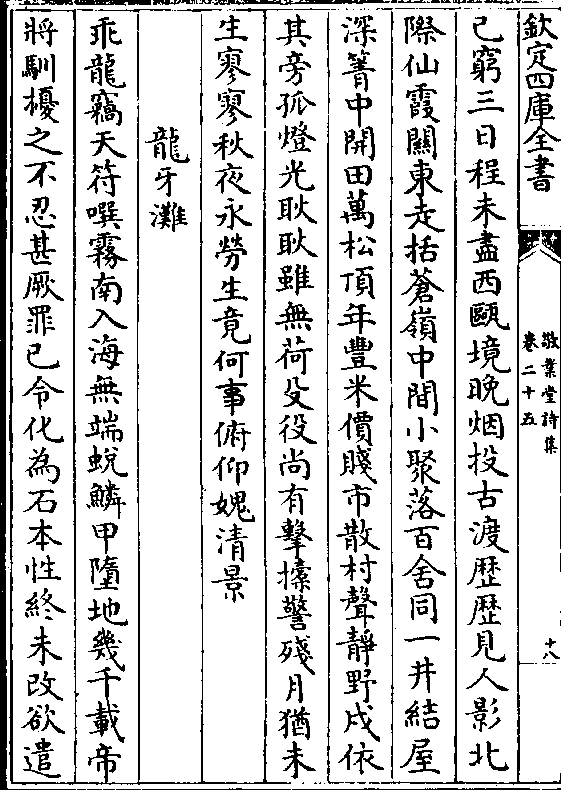 欽定四庫全書
敬業堂詩集
卷二十五
十八
已窮三日程未盡西甌境晩烟投古渡歴歴見人影北
際仙霞關東走括蒼嶺中間小聚落百舍同一井結屋
深箐中開田萬松頂年豐米價賤市散村聲靜野戍依
其旁孤燈光耿耿雖無荷殳役尚有擊㯓警殘月猶未
生寥寥秋夜永勞生竟何事俯仰媿清景
龍牙灘
乖龍竊天符噀霧南入海無端蛻鱗甲墮地幾千載帝
將馴擾之不忍甚厥罪已令化為石本性終未改欲遣